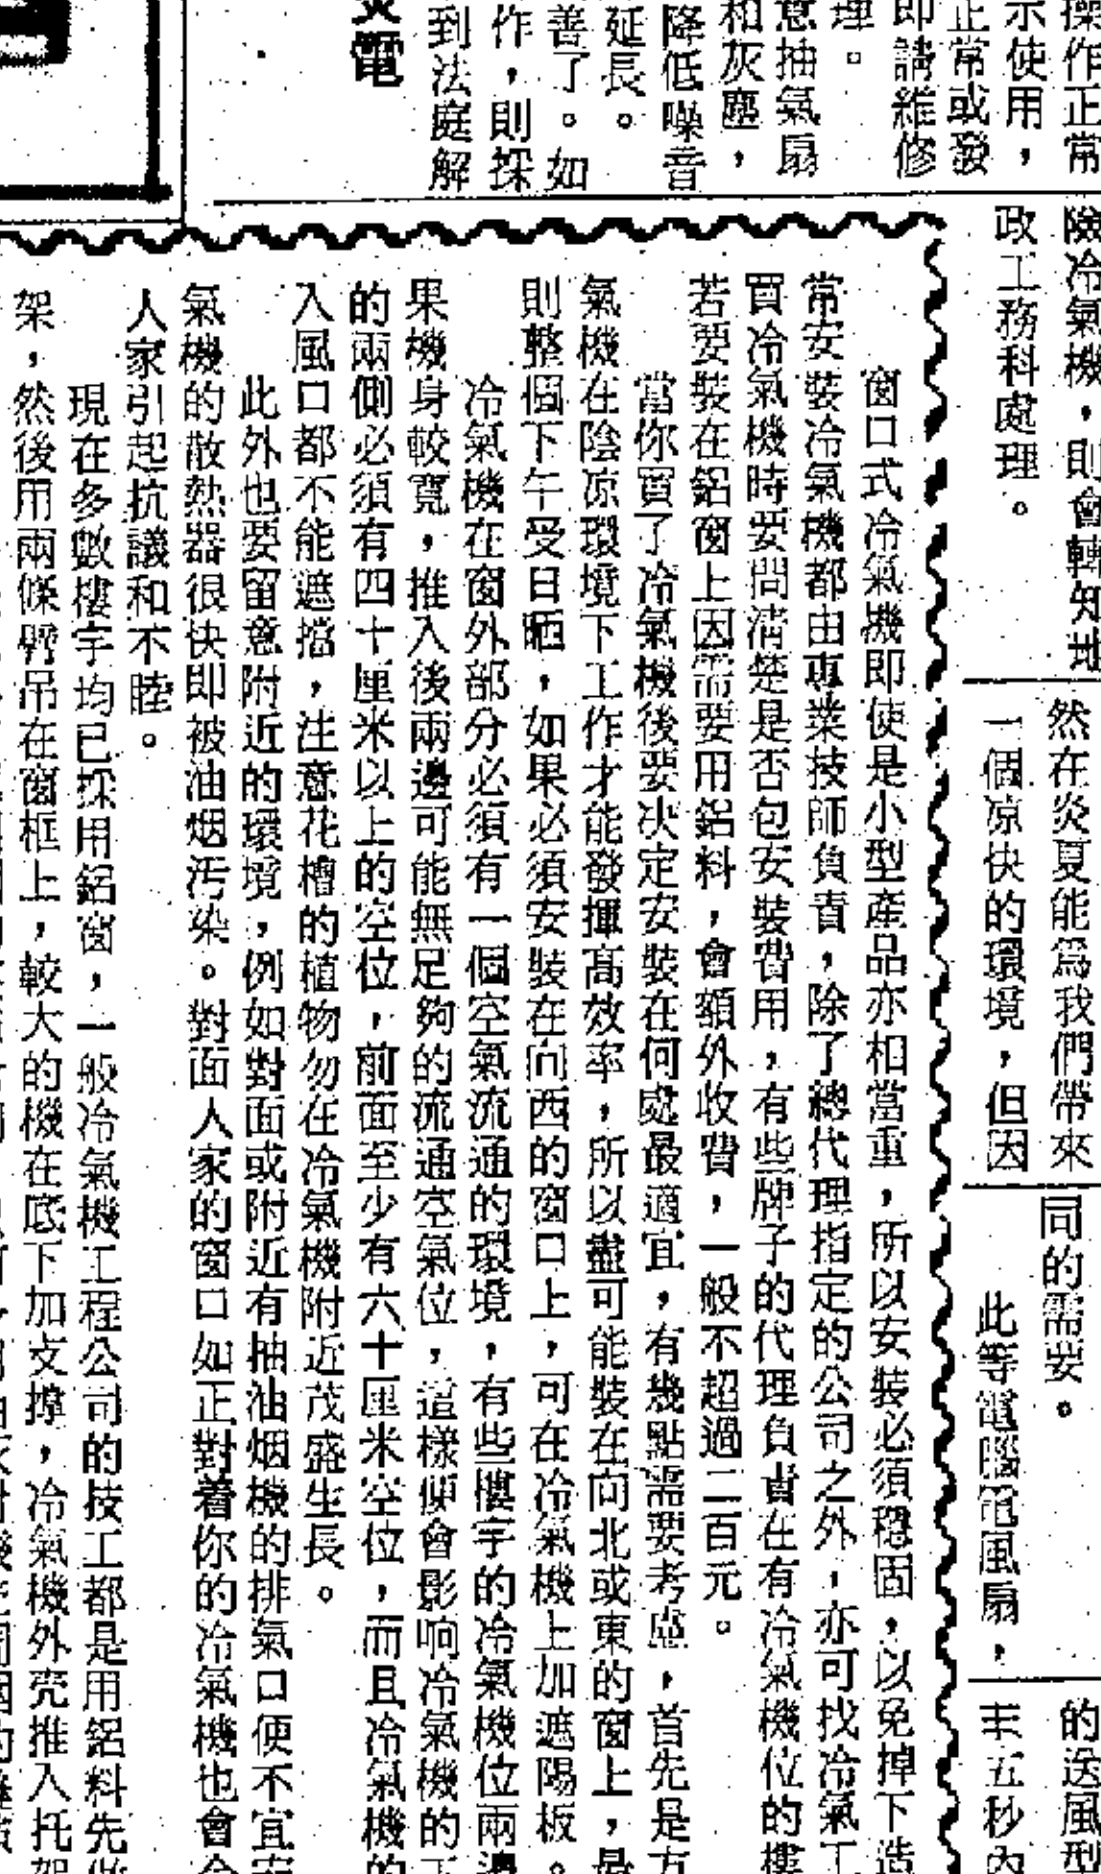 操作正常
示使用，
正常或發
即請維修
理。
意抽氣扇
和灰塵，
降低噪音
延長。
善了。如
作，則採
到法庭解
電
險冷氣機，則會轉知地
政工務科處理。
然在炎夏能爲我們帶來
一個凉快的環境，但因
同的需要。
此等電腦電風扇，
的送風型
五秒內
窗口式冷氣機即使是小型產品亦相當重，所以安裝必須穩固，以免掉下造
常安裝冷氣機都由專業技師負責，除了總代理指定的公司之外，亦可找冷氣工
買冷氣機時要問清楚是否包安裝費用，有些牌子的代理負責在有冷氣機位的樓
若要裝在鋁窗上因需要用鋁料，會額外收費，一般不超過二百元。
當你買了冷氣機後要决定安裝在何處最適宜，有幾點需要考慮，首先是方
氣機在陰凉環境下工作才能發揮高效率，所以盡可能裝在向北或東的窗上，最
則整個下午受日晒，如果必須安裝在向西的窗口上，可在冷氣機上加遮陽板。
冷氣機在窗外部分必須有一個空氣流通的環境，有些樓宇的冷氣機位兩邊
果機身較寬，推入後兩邊可能無足夠的流通空氣位，這樣便會影响冷氣機的
的兩側必須有四十厘米以上的空位，前面至少有六十厘米空位，而且冷氣機的
入風口都不能遮擋，注意花槽的植物勿在冷氣機附近茂盛生長。
此外也要留意附近的環境，例如對面或附近有抽油烟機的排氣口便不宜安
氣機的散熱器很快即被油烟污染。對面人家的窗口如正對着你的冷氣機也會
人家引起抗議和不睦。
現在多數樓宇均已採用鋁窗，一般冷氣機工程公司的技工都是用鋁料先做
架，然後用兩條臂吊在窗框上，較大的機在底下加支撐，冷氣機外壳推入托架